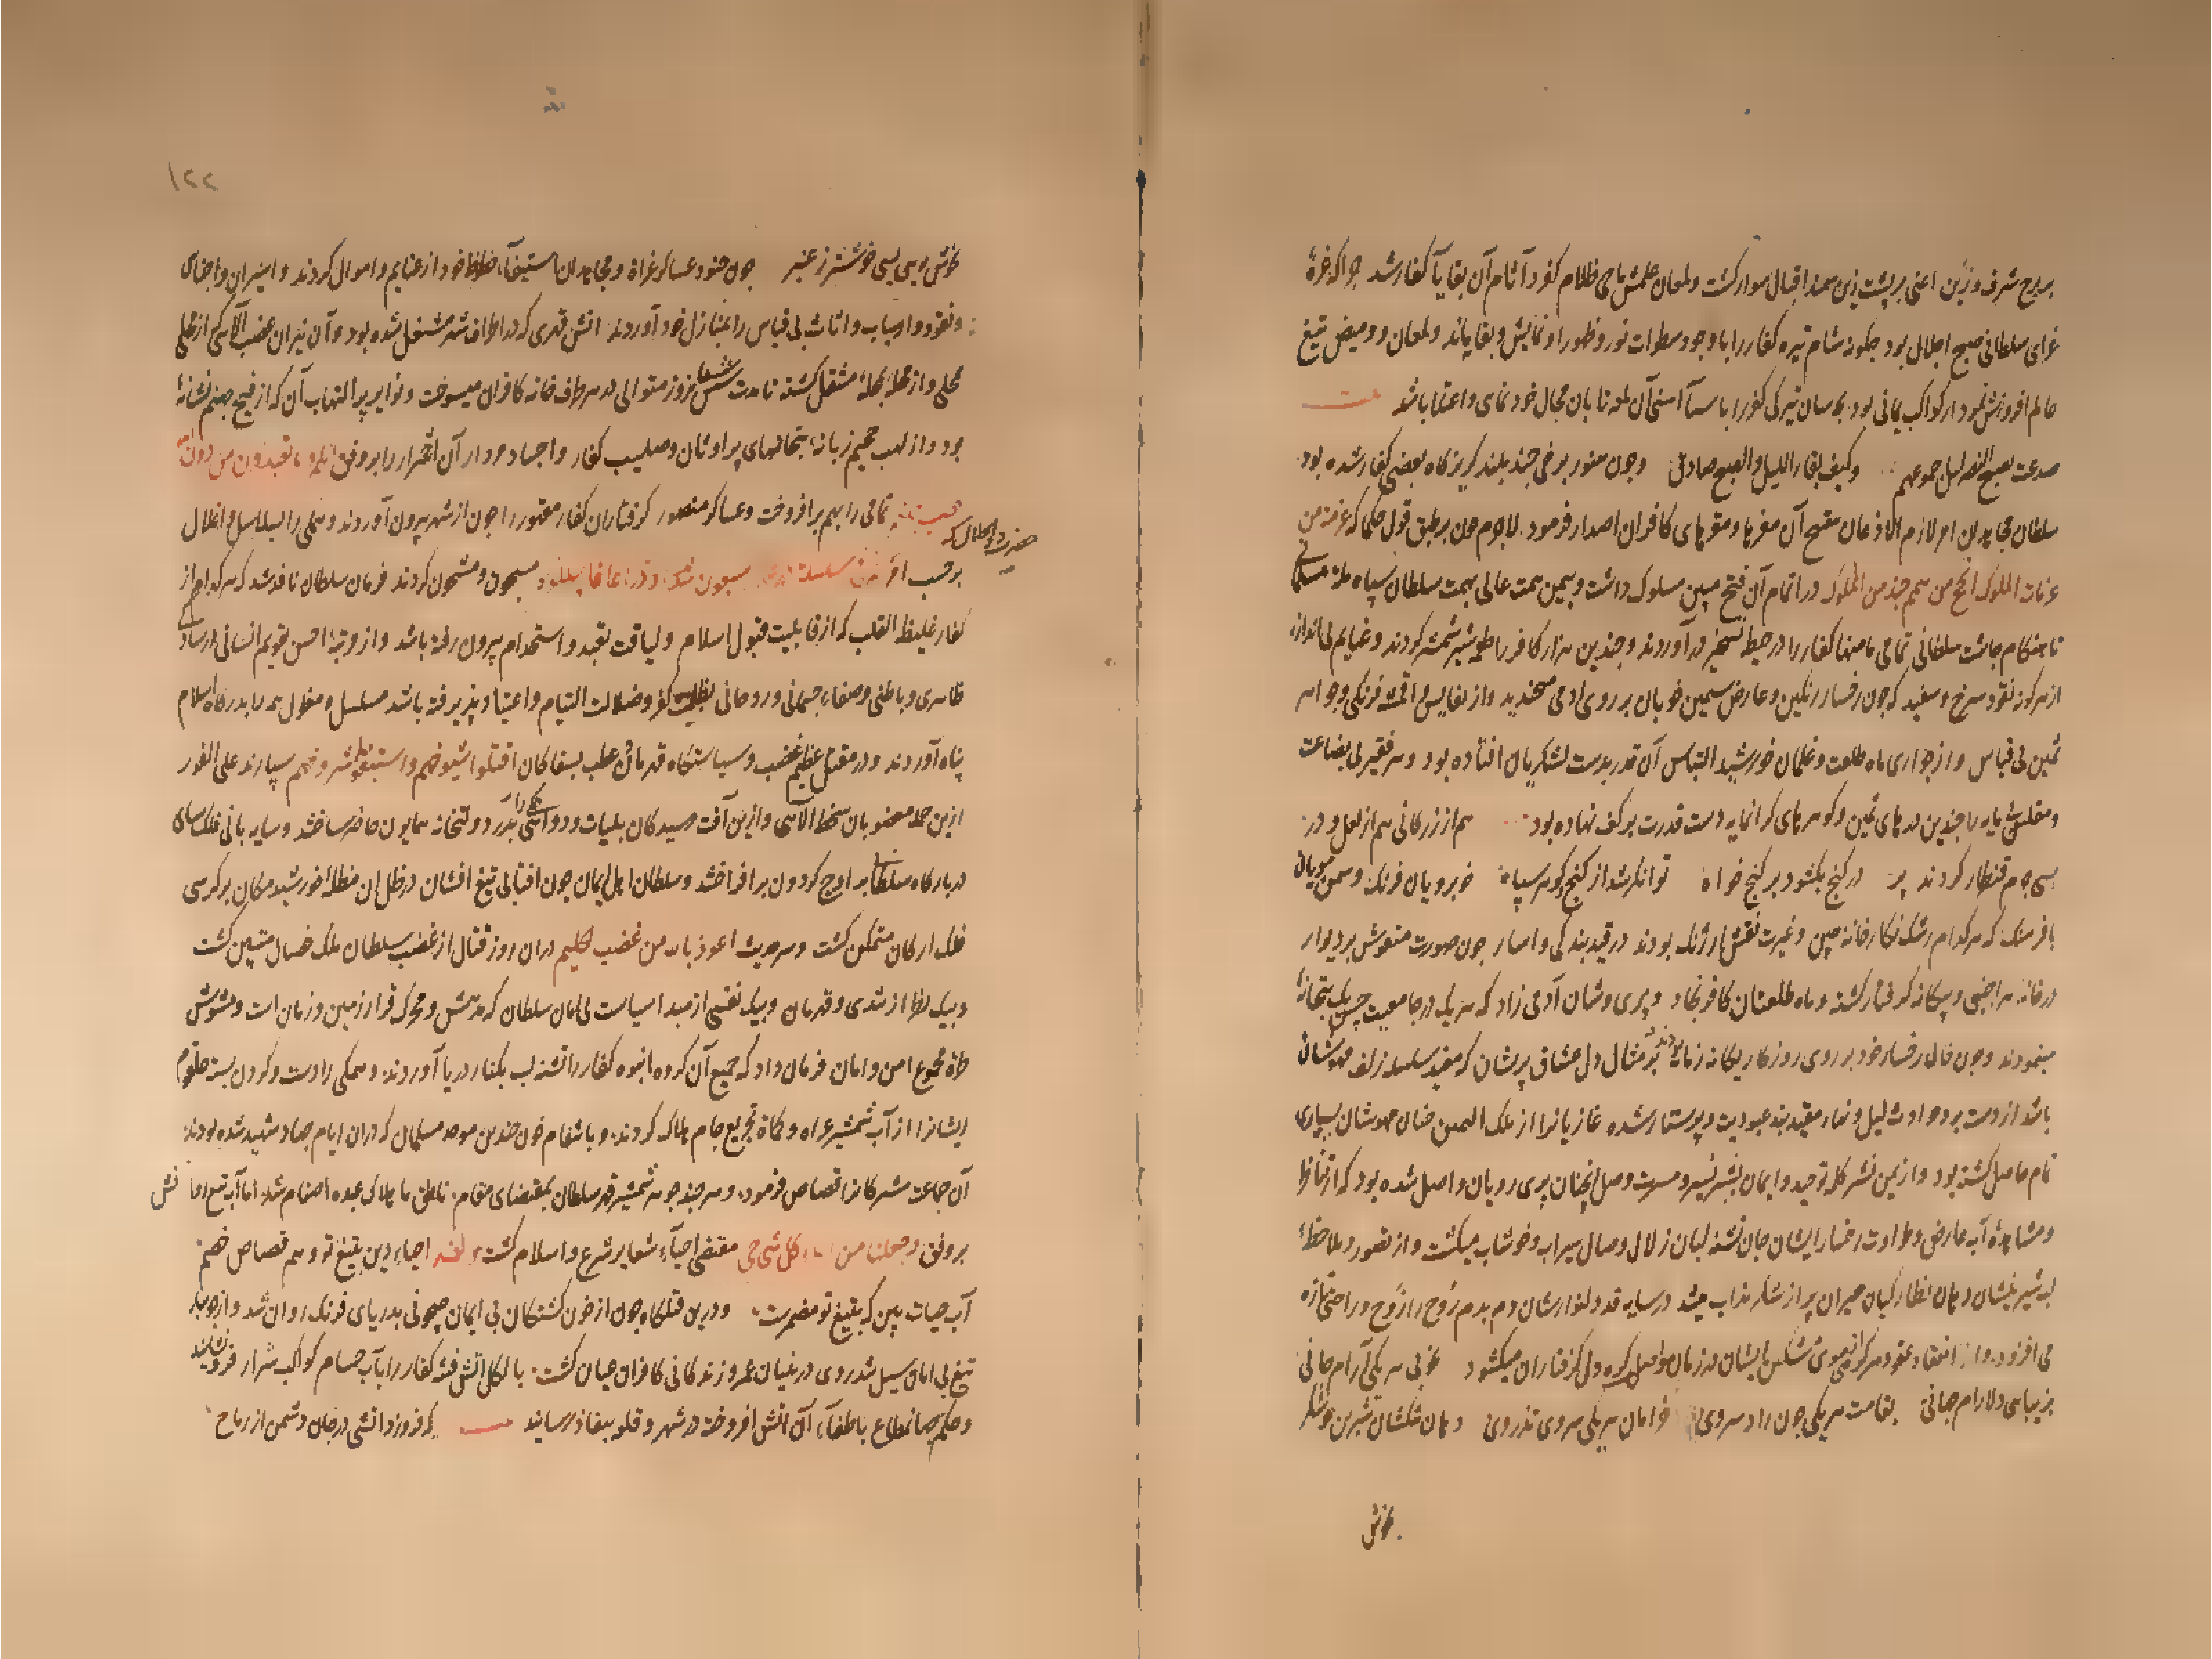 ببرج شرف وزین اعنی بر پشت زین سمند اقبال سوار کشت ولمعان حلمش ماحی ظلام کفر و آثام آن بقایاآ کفار شد چرا که غرهٔ
غرای سلطانی صبح اجلال بود چکونه شام تیره کفار را با وجود سطوات نور و ظهور او نمایش و بقا یاند ولمعان و ومیض تیغ
عالم افروزش نمودار کواکب یمانی بود بچه سان تیرکی کفر را با سنا آن لمعه تابان مجال خود نمای و اعتلا باشد
صدعت بصبح النصر لیل جموعهم وکیف بقاء اللیل والصبح صادق وچون هنوز بر فی چند بلند کریزکاه بعضی کفار شده بود
سلطان مجاهدان امر لازم الاذعان بفتح آن مغرها و مقرهای کافران اصدار فرمود لاجرم چون بر طبق قول حکما که عزمة من
عزمات الملوک انجح من همم جند من الملوک در اتمام آن فتح مبین مسلوک داشت و بیمن همت عالی نهمت سلطان سپاه ملة مسلمانی
تا هنکام چاشت سلطانی تمامی مامنها کفار را در حیطه تسخیر در آوردند و چندین هزار کافر را طعمه شیر شمشیر کردند و غنایم بی اندازه
از هر کونه نقود سرخ و سفید که چون رخسار رنکین و عارض سیمین خوبان بر روی آدمی میخندید و از نفایس و اقمشه فرنکی و جواهر
ثمین بی قیاس و از جواری ماه طلعت و غلمان خورشید التباس آن قدر بدست لشکریان افتاده بود و هر فقیر بی بضاعت
و مفلس بی مایه را چندین درهای ثمین و کوهرهای کرانمایه دست قدرت بر کف نهاده بود هم از زر کانی هم از لعل و در
بسی جرم قنطار کردند پر در کنج بکشود بر کنج خواه توانکر شد از کنج کوهر سپاه خوبرویان فرنک و سمن بویان
با فرهنک که هر کدام رشک نکارخانه چین و غیرت نقش ارژنک بودند در قید بندکی و اسار چون صورت منقوش بر دیوار
در خانه هر اجنبی و بیکانه کرفتار کشته و ماه طلعتان کافر نژاد و پری وشان آدمی زاد که هر یک در جامعیت حسن یک بتخانهٔ
مینمودند وچون خال رخسار خود بر روی روزکار یکانه زمانه بودند بر مثال دل عشاق پریشان که مقید سلسله زلف مهوشان
باشد از دست برد حوادث لیل و نهار مقید بند عبودیت و پرستار شده غازیانرا از ملک الیمین چنان مهوشان بسیاری
تام حاصل کشته بود و از یمن نشر کلمه توحید و ایمان بشر بشیر و مسرت وصل آنچنان پری رویان واصل شده بود که از نظاره
و مشاهدهٔ آب عارض و طراوت رخسار ایشان جان تشنه لبان زلال وصال سیراب و خوشاب میکشت و از تصور و ملاحظهٔ
لب شیرینشان دهان نظارکیان حیران پر از شکر مذاب میشد در سایه قد دلنوازشان دم بدم روح را روح و راحتی تازه
می افزود و از انعقاد عقود هر کره از موی مشکین ایشان در زمان مواصل کره دل کرفتاران میکشود بخوبی هر یکی آرام جانی
بزیبایی دلارام جهانی بقامت هر یکی چون راد سروی خرامان هر یکی سروی تذروی دهان تنکشان شیرین تر از شکر
خوش
۱۲۲
خوش بوی بسی خوشتر ز عنبر چون جنود عساکر غزاة و مجاهدان استیفاء حظوظ خود از غنایم و اموال کردند و اسیران و اجناس
و نقود و اسباب و اثاث بی قیاس را بمنازل خود آوردند آتش قهری که در اطراف شهر مشتعل شده بود و آن نیران غضب الآهی که از محلی
بمحلی و از محلهٔ بمحلهٔ منتقل کشته تا مدت شش شبانروز متوالی در هر طرف خانه کافران میسوخت و نوایر پر التهاب آن که از فیح جهنم نشانهٔ
بود و از لهب جحیم زبانهٔ بتخانهای پر اوثان و صلیب کفار و اجساد مردار آن اشرار را بر وفق انکم و ما تعبدون من دون الله
حصب جهنم تمامی را بهم بر افروخت و عساکر منصور کرفتاران کفار مقهور را چون از شهر بیرون آوردند و همکی را بسلاسل و اغلال
حضرت ذو الجلال که
بر حسب امر فی سلسلة ذرعها سبعون ذراعا فاسلکوه مسجون و مشحون کردند فرمان سلطان نافذ شد که هر کدام از
کفار غلیظ القلب که از قابلیت قبول اسلام و لیاقت تعبد و استخدام بیرون رفته باشد و از رتبهٔ احسن تقویم انسانی در ساده
ظاهری و باطنی و صفاء جسمانی و روحانی بظلمت کفر و ضلالت التیام و اعتیاد پذیرفته باشد مسلسل و مغلول همه را بدرکاه اسلام
پناه آوردند و در مقتل عظیم غضب و سیاستکاه قهرمان طلب بسفاکان اقتلوا شیوخهم و استبقوا شرخهم سپارند علی الفور
ازین جمله مغضوبان سخط الآهی و ازین آفت رسیدکان بلیات و دواهی بدر دولتخانه همایون حاضر ساختند و سایه بانی فلک سای
در بارکاه سلطانی بر اوج کردون بر افراختند و سلطان اهل ایمان چون آفتابی تیغ افشان در ظل ان مظله خورشید مکان بر کرسی
فلک ارکان متمکن کشت و سر حدیث اعوذ بالله من غضب الحلیم در ان روز قتال از غضب سلطان ملک خصال متبین کشت
و بیک نظر از تندی و قهرمان و بیک نفسی از مبدا سیاست بی امان سلطان که مدهش و محرک قرار زمین و زمان است و مشوش
طرهٔ مجموع امن و امان فرمان داد که جمیع آن کروه انبوه کفار را تشنه لب بکنار دریا آوردند و همکی را دست و کردن بسته حلقوم
ایشانرا از آب شمشیر غزاه و کماة تجریع جام هلاک کردند و بانتقام خون چندین موحد مسلمان که دران ایام جهاد شهید شده بودند
آن جماعت مشرکانرا قصاص فرمود و هر چند جوهر شمشیر قهر سلطان بمقتضای مقام ناطق ما بهلاک عبده اصنام شد اما آب تیغ او آتش
بر وفق وجعلنا من الماء کل شی حی مقتضی احیآء شعایر شرع و اسلام کشت لمولفه احیاء دین بتیغ تو و هم قصاص خصم
آب حیات بین که بتیغ تو مضمرست ودرین قتلکاه چون از خون کشتکان بی ایمان جیحونی بدریای فرنک روان شد و از جویبار
تیغ بی امان سیل شد روی در بنیان عمر و زندکانی کافران عیان کشت بالکل آتش فتنه کفار را بآب حسام کواکب شرار فرو نشاندند
و حکم جهانمطاع باطفاء آن آتش افروخته در شهر و قلعه بنفاذ رسانید که فروزد آتشی در جان دشمن از رماح